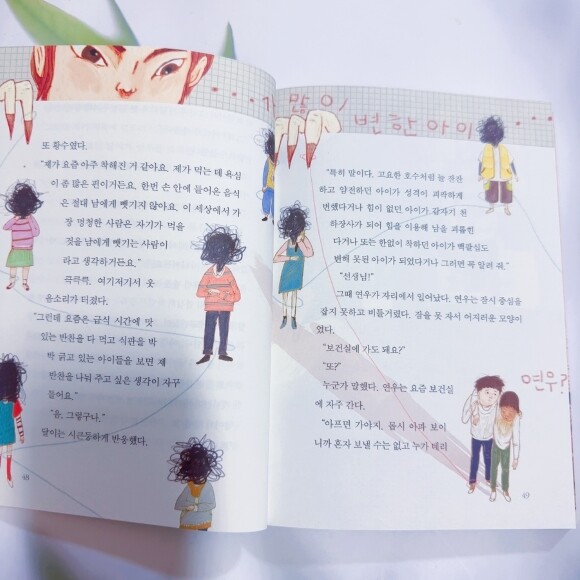 또 황수였다.
"제가 요즘 아주 착해진 거 같아요. 제가 먹는 데 욕심
이 좀 많은 편이거든요. 한번 손 안에 들어온 음식
은 절대 남에게 뺏기지 않아요. 이 세상에서 가
장 멍청한 사람은 자기가 먹을
것을 남에게 뺏기는 사람이
라고 생각하거든요."
큭큭큭, 여기저기서 웃
음소리가 터졌다.
"그런데 요즘은 급식 시간에 맛
있는 반찬을 다 먹고 식판을 박
박 긁고 있는 아이들을 보면 제
반찬을 나눠 주고 싶은 생각이 자꾸
들어요."
"음, 그렇구나."
달이는 시큰둥하게 반응했다.
48
가 많이
변한 아이
"특히 말이다. 고요한 호수처럼 늘 잔잔
하고 얌전하던 아이가 성격이 괴팍하게
변했다거나 힘이 없던 아이가 갑자기 천
하장사가 되어 힘을 이용해 남을 괴롭힌
다거나 또는 한없이 착하던 아이가 백팔십도
변해 못된 아이가 되었다거나 그러면 꼭 알려 줘."
"선생님!"
그때 연우가 자리에서 일어났다. 연우는 잠시 중심을
잡지 못하고 비틀거렸다. 잠을 못 자서 어지러운 모양이
었다.
"보건실에 가도 돼요?"
"또?"
누군가 말했다. 연우는 요즘 보건실
에 자주 간다.
"아프면 가야지. 몹시 아파 보이
니까 혼자 보낼 수는 없고 누가 데리
연우?
49